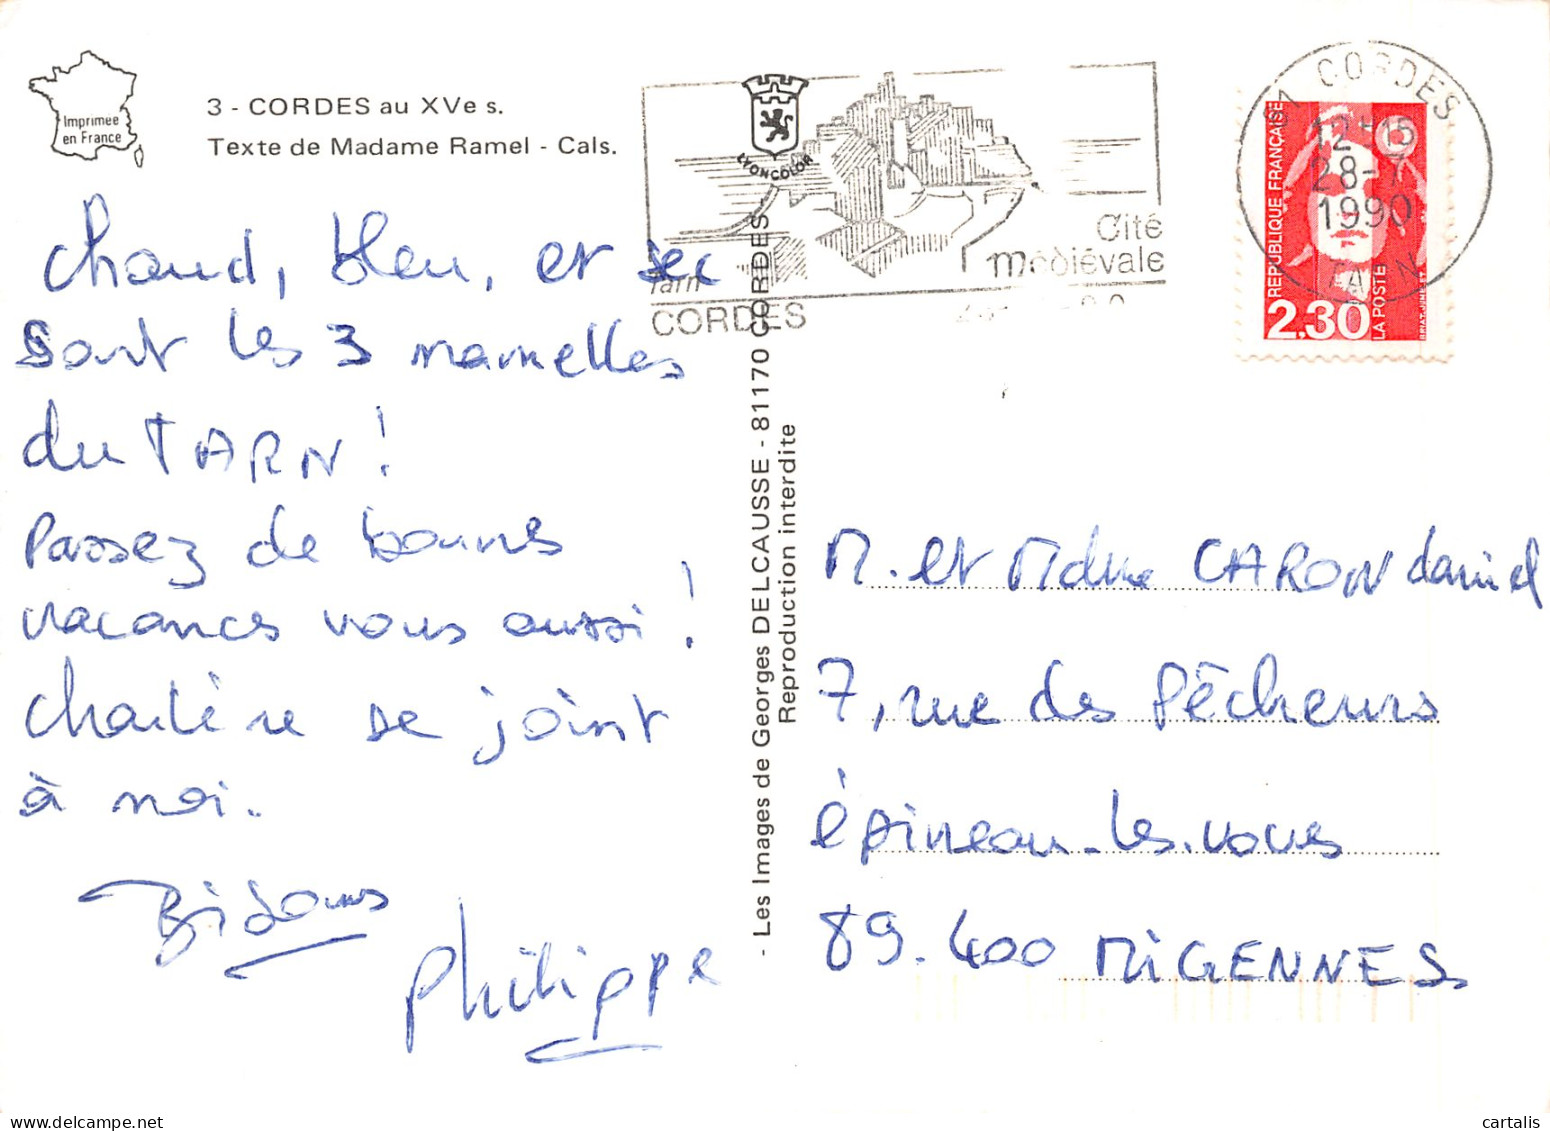 Imprimée
en France
3 - CORDES au XVe s.
Texte de Madame Ramel - Cals.
chaud, bleu, et sec
sont les 3 mamelles
du TARN !
Passez de bonnes
vacances vous aussi !
Charlène se joint
à moi.
Bisous
Philippe
LYONCOLOR
Cité
médiévale
Tarn
CORDES
- Les Images de Georges DELCAUSSE - 81170 CORDES
Reproduction interdite
81 CORDES
12H15
28-7
1990
TARN
REPUBLIQUE FRANÇAISE
2,30
LA POSTE
BRIAT.JUMELET
M. et Mdme CARON daniel
7, rue des Pêcheurs
épineau-les-voves
89.400 MIGENNES
cartalis.com